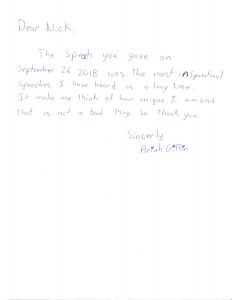 Dear Nick,
The speech you gave on
September 26 2018 was the most inspirational
speaches I have heard in a long time.
It make me think of how unique I am and
that is not a bad thing so thank you
Sincerly,
Ariah Griffin